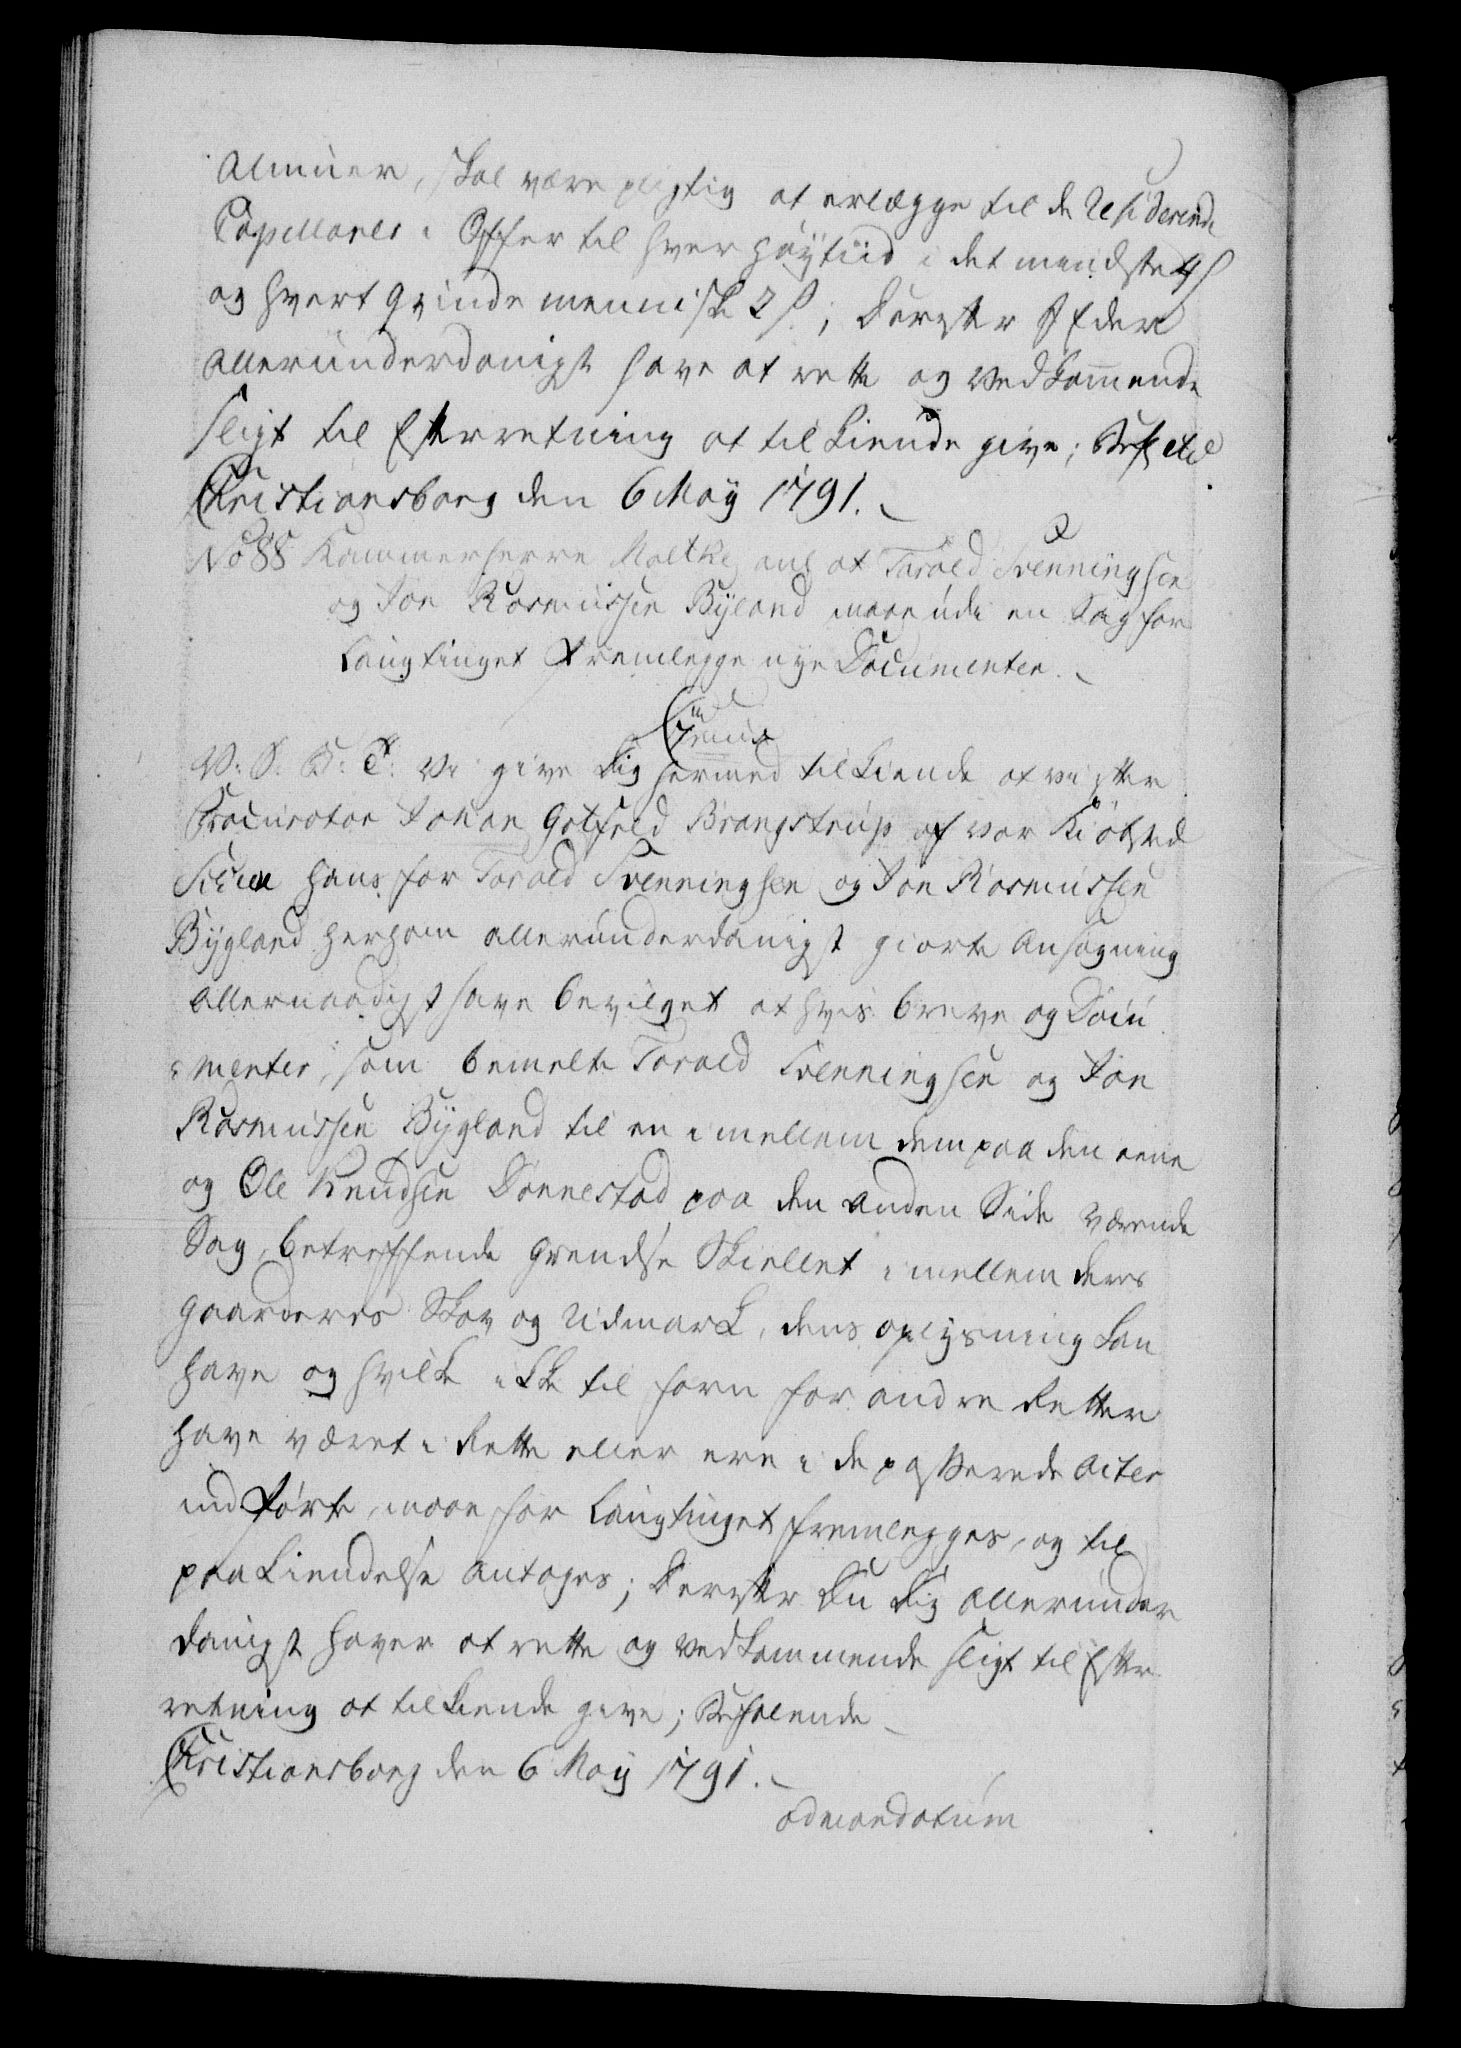 Almuer, skal være pligtig at erlægge til de Residerende
Capellaner i Offer til hver Høytiid i det mindste 4 s
og hvert Qvindemenniske 2 s; Derefter I Eder
allerunderdanigst have at rette og vedkommende
sligt til Efterretning at tilkiende give; Bef etc
Christiansborg den 6 Maÿ 1791.
No 88 Kammerherre Moltke, anl at Torold Svenningsen
og Jon Rosmussen Bÿland maae udi en Sag for
Laugtinget fremlegge nye Documenter.
V: S: G: T: Vi give dig hermed tilkiende at vi efter
Procurator Johan Gotfred Brangstrup af vor Kiøbsted
Scien hans for Torold Svenningsen og Jon Rosmussen
Bÿgland herhom allerunderdanigst giorte Ansøgning
allernaadigst have bevilget at hvis breve og Docu
menter, som bemelte Torold Svenningsen og Jon
Rosmussen Bÿgland til en imellem dem paa den eene
og Ole Knudsen Donnestad paa den anden Side værende
Sag, betreffende Grendse Skiellet imellem deres
gaarderes Skov og Udmark, dens oplysning kan
have og hvilke ikke til forn for andre Retter
have været i Rette eller ere i de passerede Acter
indførte, maae for Laugtinget fremlegges, og til
paakiendelse antages; Derefter Du dig allerunder
danigst haver at rette og vedkommende sligt til Efter
retning at tilkiende give; Befalende
Christiansborg den 6 Maÿ 1791.
ad mandatum